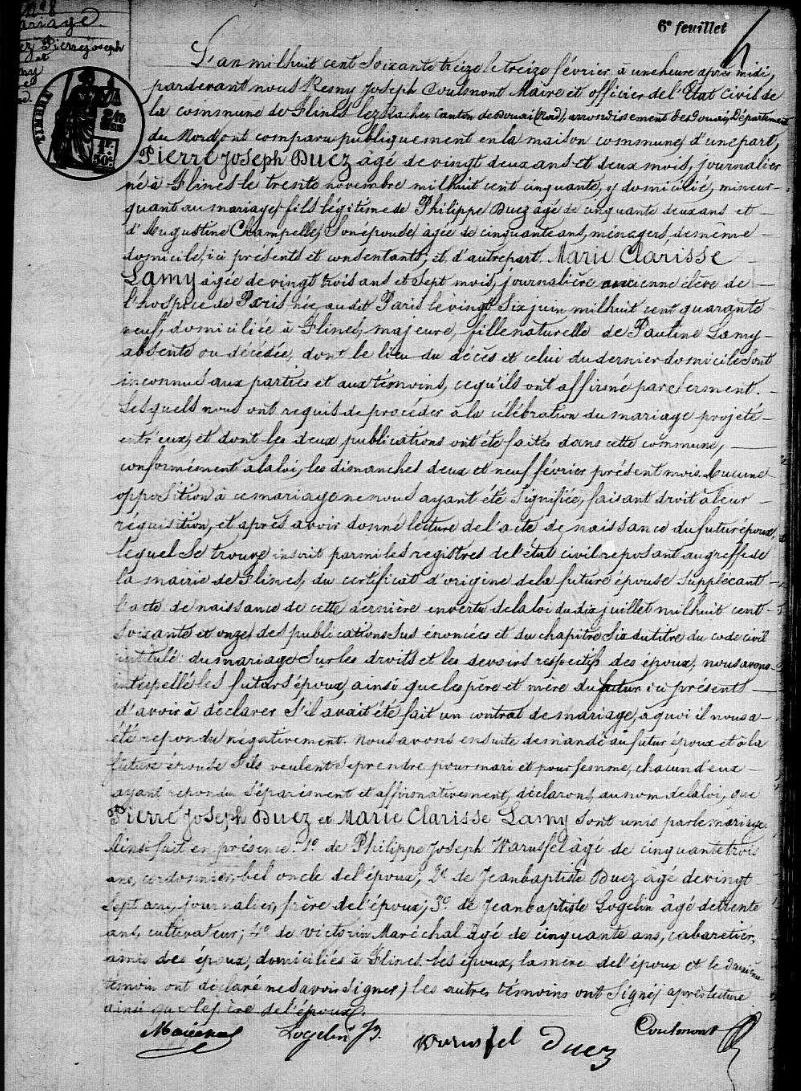 Mariage.
Duez Pierre joseph
et
Lamy
6e feuillet
L'an mil huit cent Soixante treize le treize février, à une heure après midi,
pardevant nous Resny Joseph Coulmont Maire et officier de l'Etat Civil de
la commune de Flines lez Raches Canton de Douai (Nord), arrondissement de Douai, Département
du Nord, ont comparu publiquement en la maison commune, d'une part,
Pierre Joseph Duez âgé de vingt deux ans et deux mois, journalier
né à Flines le trente novembre mil huit cent cinquante, y domicilié, mineur
quant au mariage, fils légitime de Philippe Duez âgé de cinquante deux ans et
d'Augustine Champelle, Son épouse, agée de cinquante ans, ménagers, de même
domicile, ici présents et consentants, et d'autre part. Marie Clarisse
Lamy agée de vingt trois ans et Sept mois, journalière ancienne élève de
l'hospice de Paris née audit Paris le vingt Six juin mil huit cent quarante
neuf, domiciliée à Flines, majeure, fille naturelle de Pauline Lamy
absente ou décédée, dont le lieu du décès et celui du dernier domicile Sont
inconnus aux parties et aux témoins, ce qu'ils ont affirmé par Serment.
Lesquels nous ont requis de procéder à la célébration du mariage projeté
entr'eux, et dont les deux publications ont été faites dans cette commune,
conformément à la loi, les dimanches deux et neuf février présent mois. Aucune
opposition à ce mariage ne nous ayant été Signifiée, faisant droit à leur
réquisition, et après avoir donné lecture de l'acte de naissance du futur époux,
lequel Se trouve inscrit parmi les registres de l'état civil reposant au greffe de
la mairie de Flines, du certificat d'origine de la future épouse Suppléant
l'acte de naissance de cette dernière en vertu de la loi du dix juillet mil huit cent
Soixante et onze, des publications Sus énoncées et du chapitre Six du titre du code civil
intitulé: du mariage, Sur les droits et les devoirs respectifs des époux, nous avons
interpellé les futurs époux, ainsi que les père et mère du futur ici présents
d'avoir à déclarer S'il avait été fait un contrat de mariage, à quoi il nous a
été répondu négativement. Nous avons ensuite demandé au futur époux et à la
future épouse S'ils veulent Se prendre pour mari et pour femme, chacun d'eux
ayant répondu Séparément et affirmativement, déclarons, au nom de la loi, que
Pierre Joseph Duez et Marie Clarisse Lamy Sont unis par le mariage.
Ainsi fait en présence: 1o de Philippe Joseph Warusfel âgé de cinquante trois
ans, cordonnier, bel oncle de l'époux; 2o de Jean baptiste Duez âgé de vingt
Sept ans, journalier, frère de l'époux; 3o de Jean baptiste Logelin âgé de trente
ans, cultivateur; 4o de Victorin Maréchal âgé de cinquante ans, cabaretier,
amis des époux, domiciliés à Flines. Les époux, la mère de l'époux et le deuxième
témoin ont déclaré ne Savoir Signer; les autres témoins ont Signé, après lecture
ainsi que le père de l'époux.
Logelin JB. Warusfel Duez Coulmont